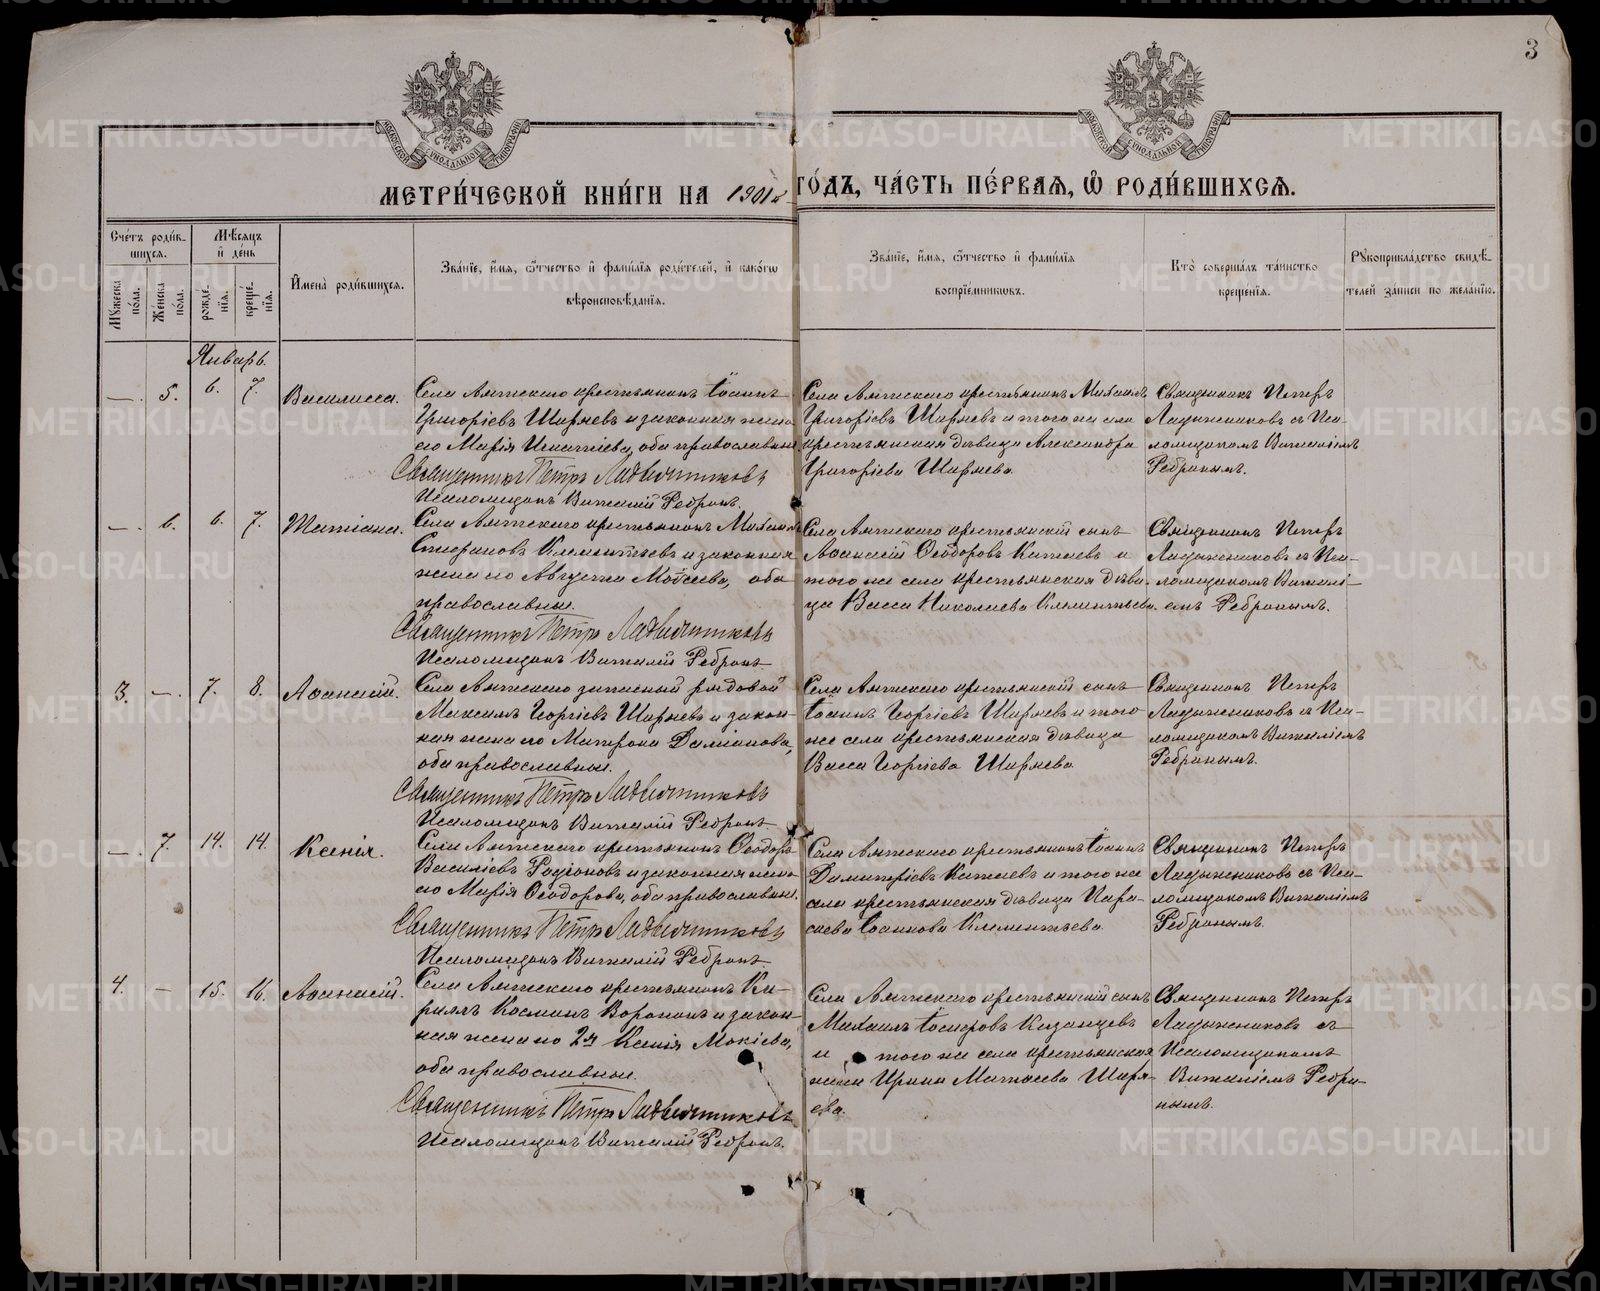 3
МОСКОВСКОЙ СѴНОДАЛЬНОЙ ТИПОГРАФІИ
МОСКОВСКОЙ СѴНОДАЛЬНОЙ ТИПОГРАФІИ
МЕТРИ́ЧЕСКОЙ КНИ́ГИ НА 1901й ГО́ДЪ, ЧА́СТЬ ПЕ́РВАѦ, Ѽ РОДИ́ВШИХСѦ.
Сче́тъ роди́вшихсѧ.
Мꙋ́жеска по́ла.
Же́нска по́ла.
Мѣ́сѧцъ и҆ де́нь
рожде́нїѧ.
креще́нїѧ.
И҆мена̀ роди́вшихсѧ.
Зва́нїе, и҆́мѧ, ѻ҆́тчество и҆ фами́лїѧ роди́телей, и҆ како́гѡ
вѣроисповѣ́данїѧ.
Зва́нїе, и҆́мѧ, ѻ҆́тчество и҆ фами́лїѧ
воспрїе́мникѡвъ.
Кто̀ соверша́лъ та́инство
креще́нїѧ.
Рꙋкоприкла́дство свидѣ́-
телей за́писи по жела́нїю.
Январь.
— . 5. 6. 7. Василисса.
Села крестьянинъ Іоаннъ
Григоріевъ Ширяевъ и законная жена
его Марія Игнатіева, оба православные.
Священникъ Петръ Ладыжниковъ
Псаломщикъ Виталій Ребринъ.
Села крестьянинъ Михаилъ
Григоріевъ Ширяевъ и того же села
крестьянская дѣвица Александра
Григоріева Ширяева.
Священникъ Петръ
Ладыжниковъ съ Пса-
ломщикомъ Виталіемъ
Ребринымъ.
— . 6. 6. 7. Татіана.
Села крестьянинъ Михаилъ
Стефановъ Клементьевъ и законная
жена его Августа Моѵсеева, оба
православные.
Священникъ Петръ Ладыжниковъ
Псаломщикъ Виталій Ребринъ
Села крестьянскій сынъ
Аѳанасій Ѳеодоровъ Китаевъ и
того же села крестьянская дѣви-
ца Васса Николаева Клементьева.
Священникъ Петръ
Ладыжниковъ съ Пса-
ломщикомъ Виталі-
емъ Ребринымъ.
3. — . 7. 8. Аѳанасій.
Села запасный рядовой
Максимъ Георгіевъ Ширяевъ и закон-
ная жена его Матрона Даміанова,
оба православные.
Священникъ Петръ Ладыжниковъ
Псаломщикъ Виталій Ребринъ
Села крестьянскій сынъ
Іоаннъ Георгіевъ Ширяевъ и того
же села крестьянская дѣвица
Васса Георгіева Ширяева
Священникъ Петръ
Ладыжниковъ съ Пса-
ломщикомъ Виталіемъ
Ребринымъ.
— . 7. 14. 14. Ксенія.
Села крестьянинъ Ѳеодоръ
Василіевъ Родіоновъ и законная жена
его Марія Ѳеодорова, оба православные.
Священникъ Петръ Ладыжниковъ
Псаломщикъ Виталій Ребринъ
Села крестьянинъ Іоаннъ
Димитріевъ Китаевъ и того же
села крестьянская дѣвица Пара-
скева Іоаннова Клементьева.
Священникъ Петръ
Ладыжниковъ съ Пса-
ломщикомъ Виталіемъ
Ребринымъ.
4. — 15. 16. Аѳанасій.
Села крестьянинъ Ки-
риллъ Косминъ Воронинъ и закон-
ная жена его 2я Ксенія Мокіева,
оба православные.
Священникъ Петръ Ладыжниковъ
Псаломщикъ Виталій Ребринъ.
Села крестьянскій сынъ
Михаилъ Іосифовъ Казанцевъ
и того же села крестьянская
жена Ирина Матѳеева Ширя-
ева.
Священникъ Петръ
Ладыжниковъ съ
Псаломщикомъ
Виталіемъ Ребри-
нымъ.